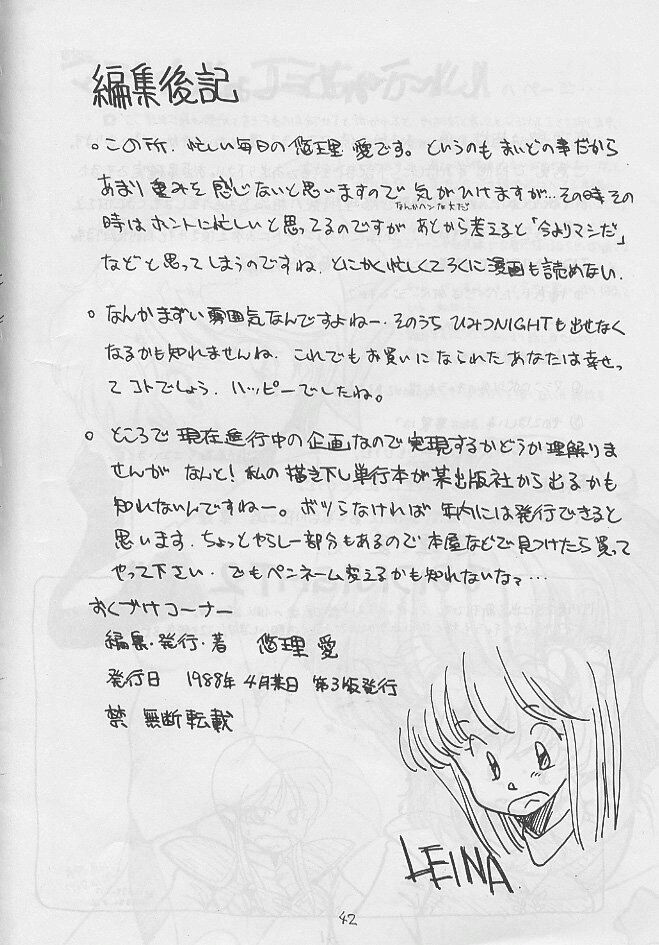 編集後記
。この所、忙しい毎日の悠理愛です。というのもまいどの事だから
あまり重みを感じないと思いますので気がひけますが…その時その
なんかヘンな文だ
時はホントに忙しいと思ってるのですがあとから考えると「今よりマシだ」
などと思ってしまうのですね、とにかく忙しくてろくに漫画も読めない.
。なんかまずい雰囲気なんですよねー.そのうちひみつNIGHTも出せなく
なるかも知れませんね.これでもお買いになられたあなたは幸せっ
てコトでしょう.ハッピーでしたね。
。ところで現在進行中の企画なので実現するかどうか理解りま
せんがなんと!私の描き下し単行本が某出版社から出るかも
知れないんですねー。ボツらなければ年内には発行できると
思います.ちょっとやらしー部分もあるので本屋などで見つけたら買って
やって下さい.でもペンネーム変えるかも知れないなァ…
おくづけコーナー
編集・発行・著 悠理愛
発行日 1988年4月某日 第3版発行
禁 無断転載
LEINA.
42